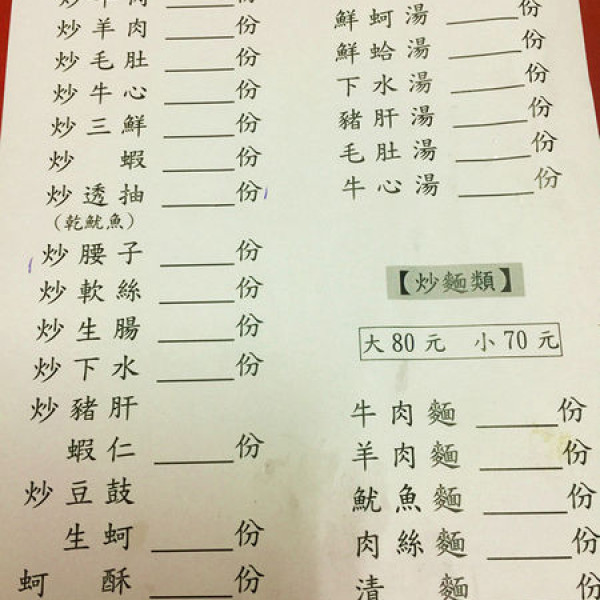 炒牛肉____份
炒羊肉____份
炒毛肚____份
炒牛心____份
炒三鮮____份
炒　蝦____份
炒透抽____份
(乾魷魚)
炒腰子____份
炒軟絲____份
炒生腸____份
炒下水____份
炒豬肝
蝦仁____份
炒豆鼓
生蚵____份
蚵　酥____份
鮮蚵湯____份
鮮蛤湯____份
下水湯____份
豬肝湯____份
毛肚湯____份
牛心湯____份
【炒麵類】
大80元　小70元
牛肉麵____份
羊肉麵____份
魷魚麵____份
肉絲麵____份
清　麵____份